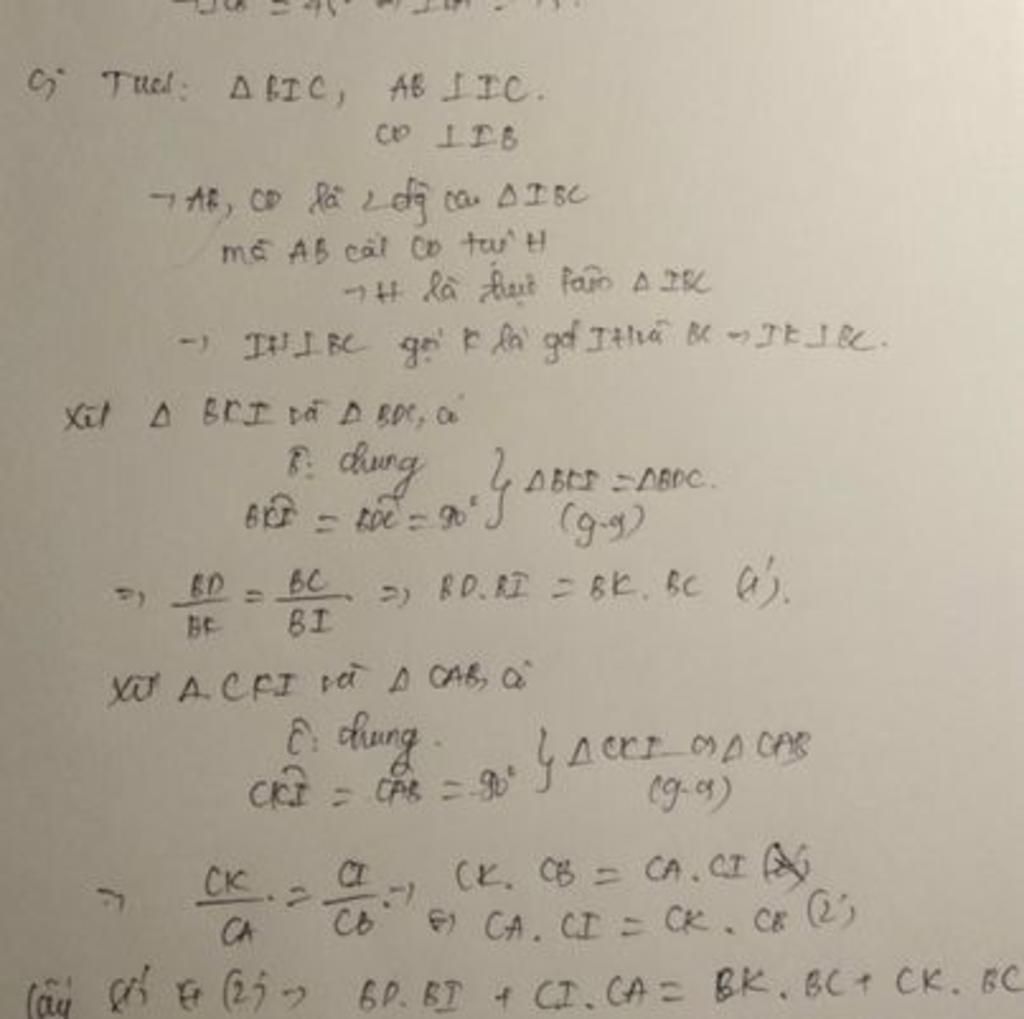 c) Trua: Δ BIC, AB ⊥ IC.
CD ⊥ IB
→ AB, CD là 2 đg cao Δ IBC
mà AB cắt CD tại H
→ H là trực tâm Δ IBC
→ IH ⊥ BC gọi K là gđ IH và BC → IK ⊥ BC.
Xét Δ BKI và Δ BDC, có
B̂: chung
BKI = BDC = 90° } Δ BKI = Δ BDC.
(g-g)
=> BD/BK = BC/BI => BD.BI = BK.BC (1').
Xét Δ CKI và Δ CAB, có
Ĉ: chung.
CKI = CAB = 90° } Δ CKI ∽ Δ CAB
(g-g)
→ CK/CA = CI/CB → CK.CB = CA.CI
⇔ CA.CI = CK.CB (2')
(2') → BD.BI + CI.CA = BK.BC + CK.BC